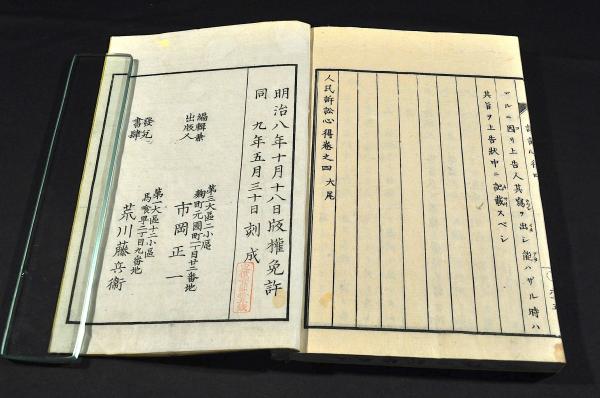 アルニ因リ上告人其寫ヲ出シ能ハザル時ハ
其旨ヲ上告狀中ニ記載スベシ
人民訴訟心得卷之四 大尾
明治八年十月十八日版權免許
同 九年五月三十日刻成
編輯兼
出版人
第三大區二小區
麴町元園町一丁目廿三番地
市岡正一
發兌
書肆
第一大區十二小區
馬喰町二丁目九番地
荒川藤兵衞